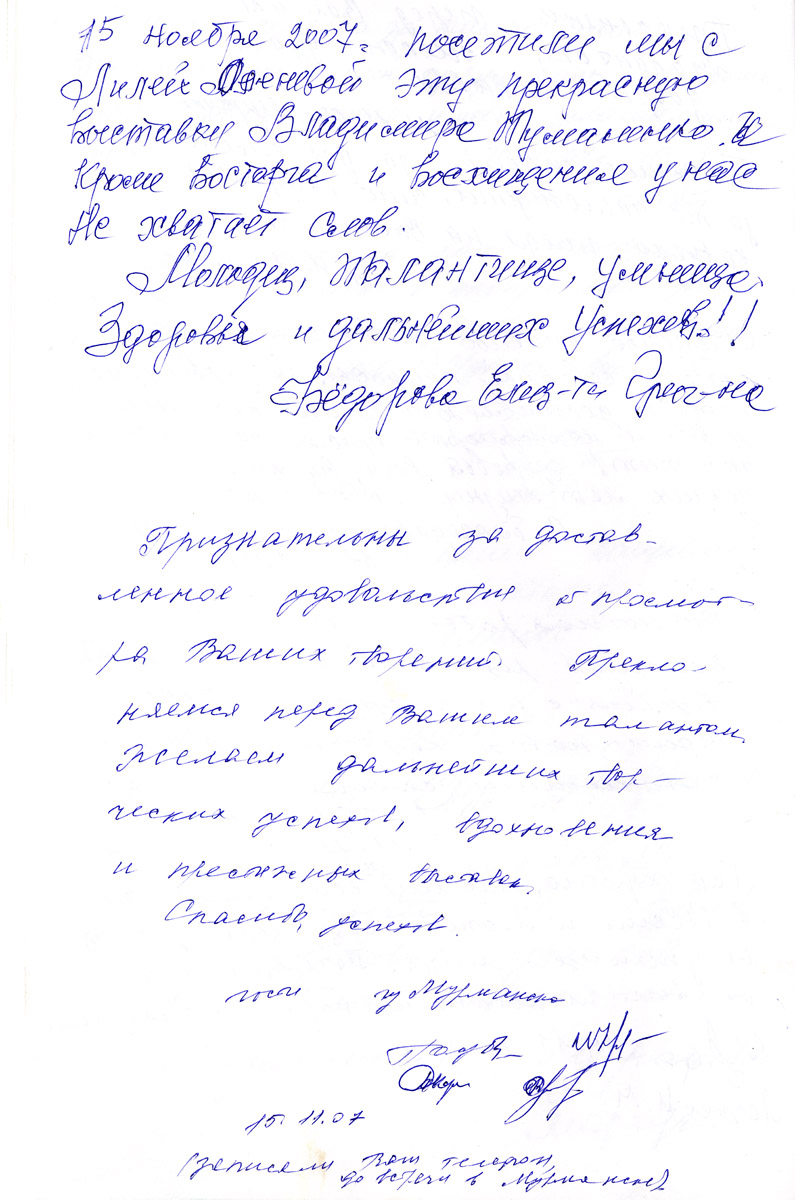 15 ноября 2007г. посетили мы с
Лилей эту прекрасную
выставку Владимира Туманенко. И
кроме восторга и восхищения у нас
не хватает слов.
Молодец, талантище, умница.
Здоровья и дальнейших успехов!!
Фёдорова Елиз-та Григ-на
Признательны за достав-
ленное удовольствие от просмот-
ра Ваших творений. Прекло-
няемся перед Вашим талантом.
Желаем дальнейших твор-
ческих успехов, вдохновения
и престижных выставок.
Спасибо, успехов.
гости из Мурманска
15.11.07
(записали Ваш телефон,
до встречи в Мурманске)